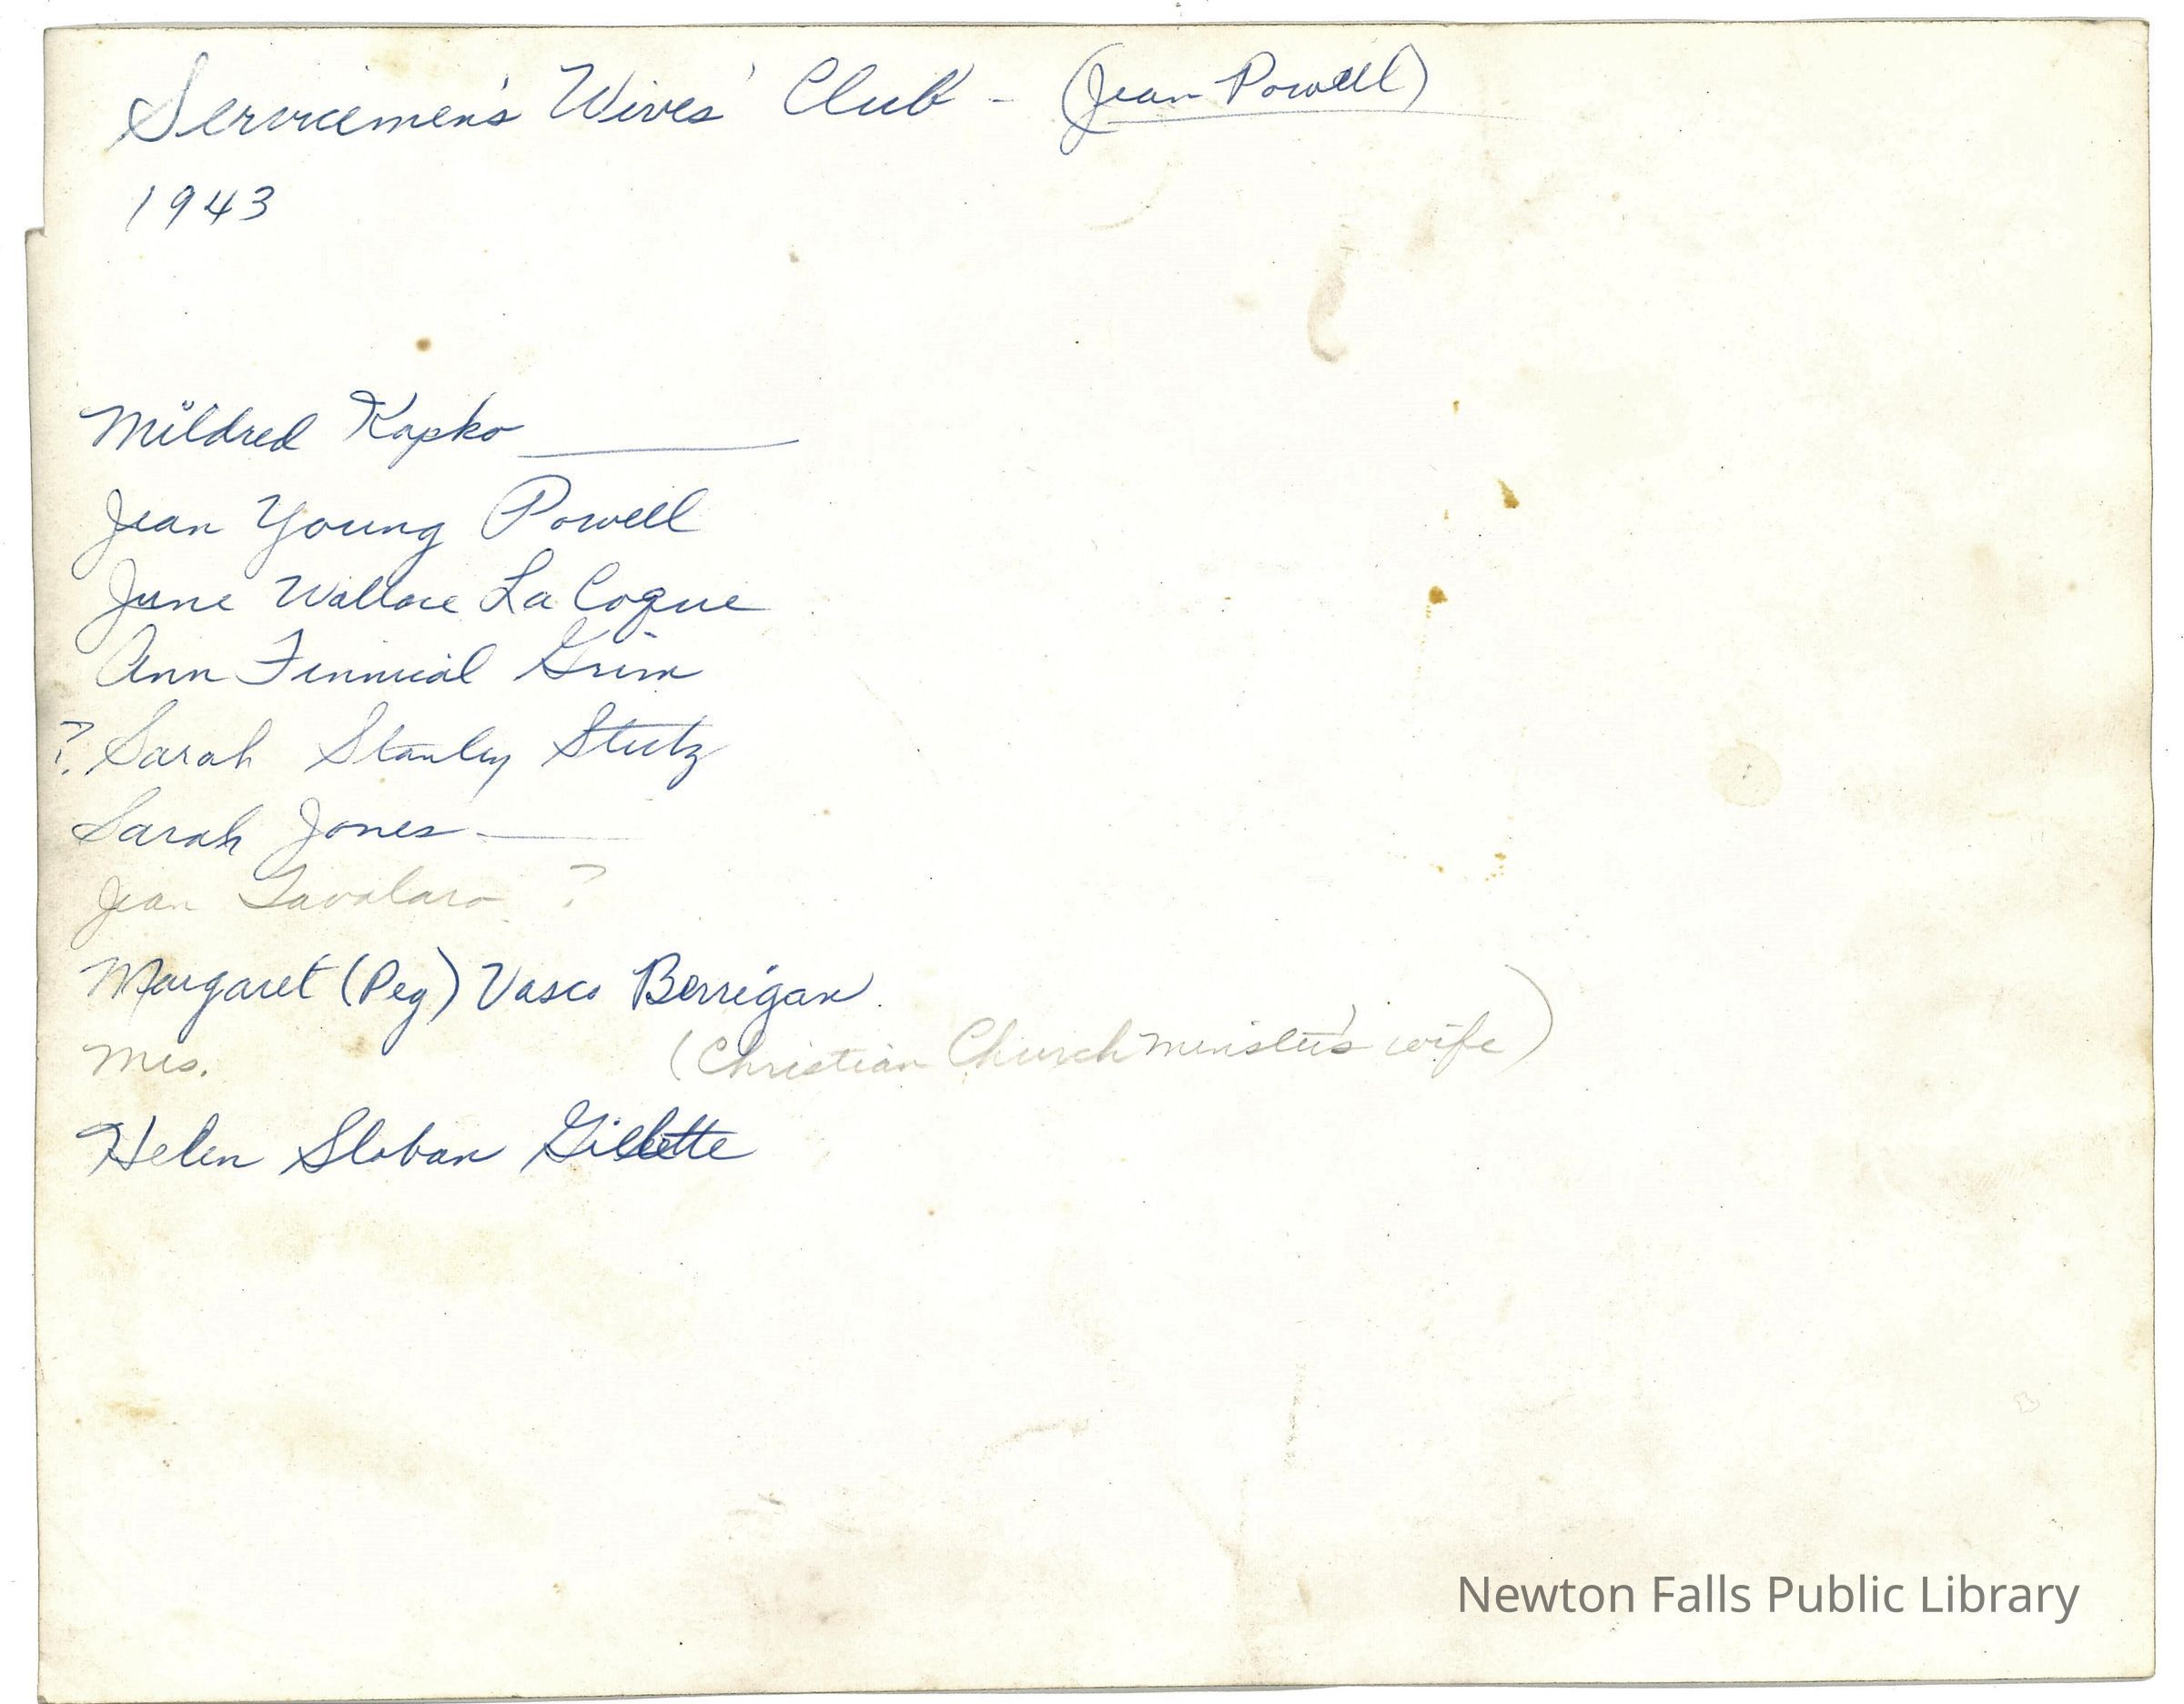 Servicemen's Wives' Club - (Jean Powell)
1943
Mildred Kapko
Jean Young Powell
June Wallace La Coque
Ann Grim
? Sarah Stanley Stutz
Sarah Jones
Jean Tavalaro ?
Margaret (Peg) Vasco Berrigan
Mrs. (Christian Church minister's wife)
Helen Sloban Gillette
Newton Falls Public Library